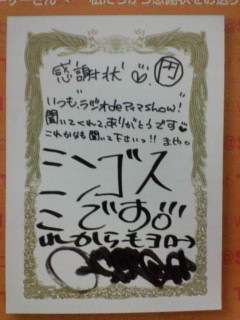 感謝状♡ 円
いつも、ラジオdeアイマshow!
聞いてくれて、ありがとうです
これからも聞いて下さいっ!! まや。
ミンゴス
です!!
これからもヨロ